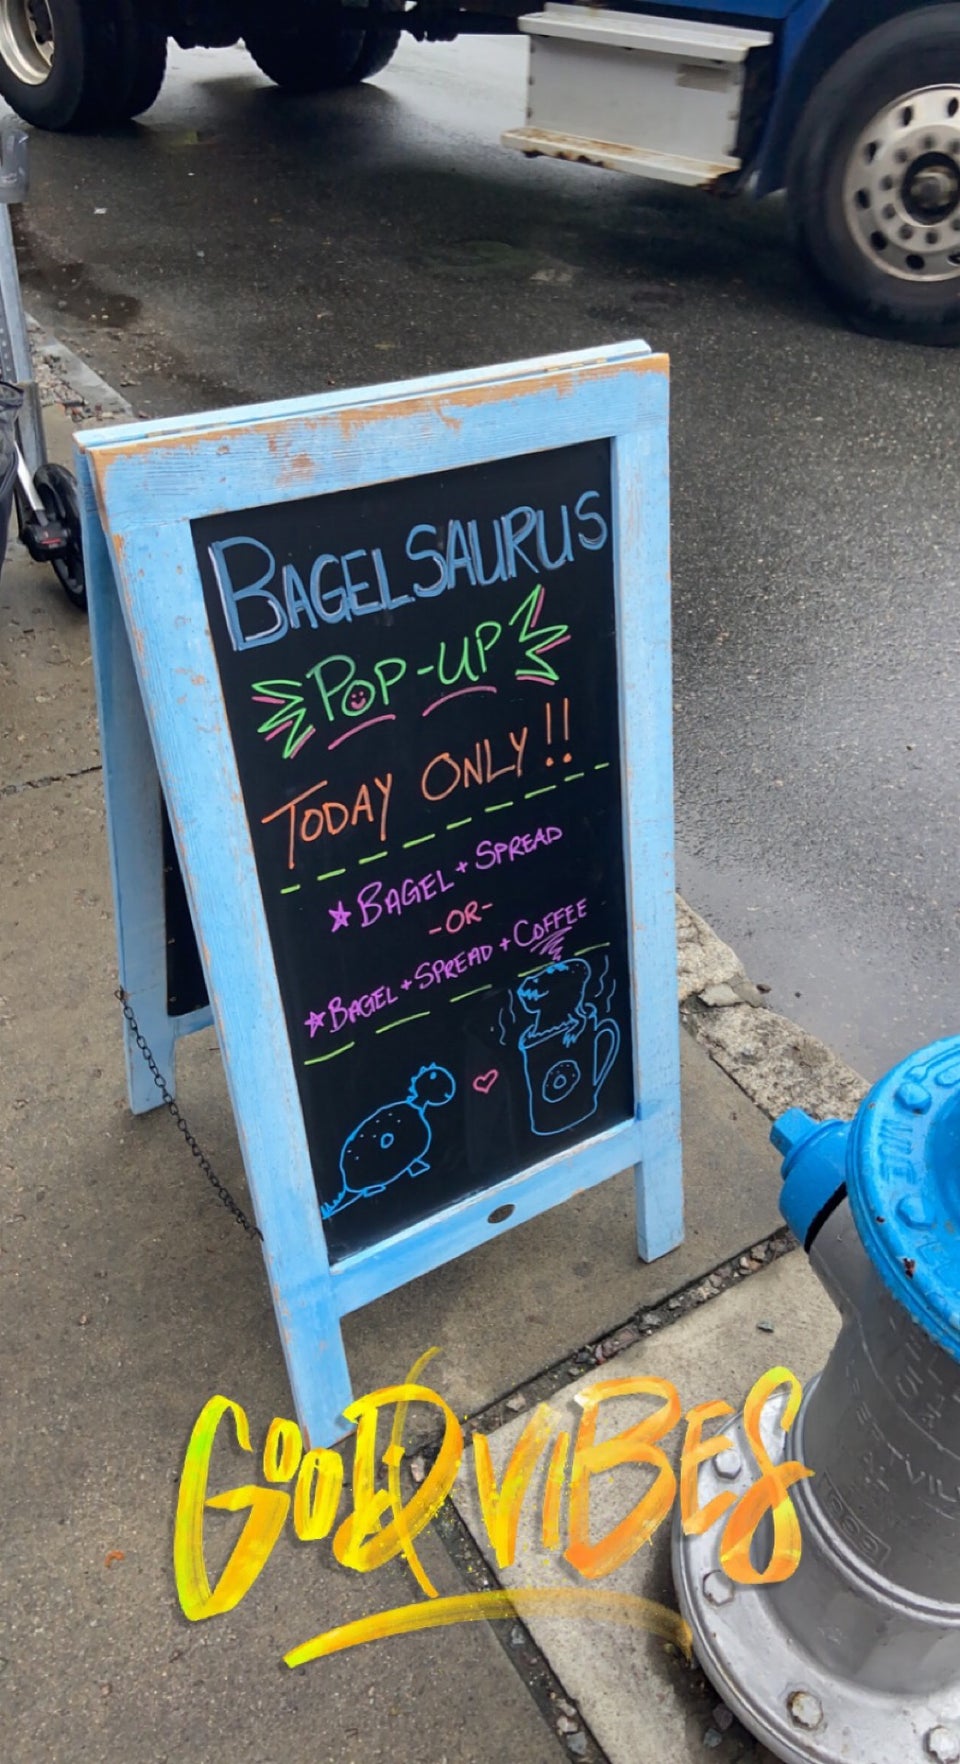 BAGELSAURUS
POP-UP
TODAY ONLY!!
BAGEL + SPREAD
-OR-
BAGEL + SPREAD + COFFEE
GOOD VIBES